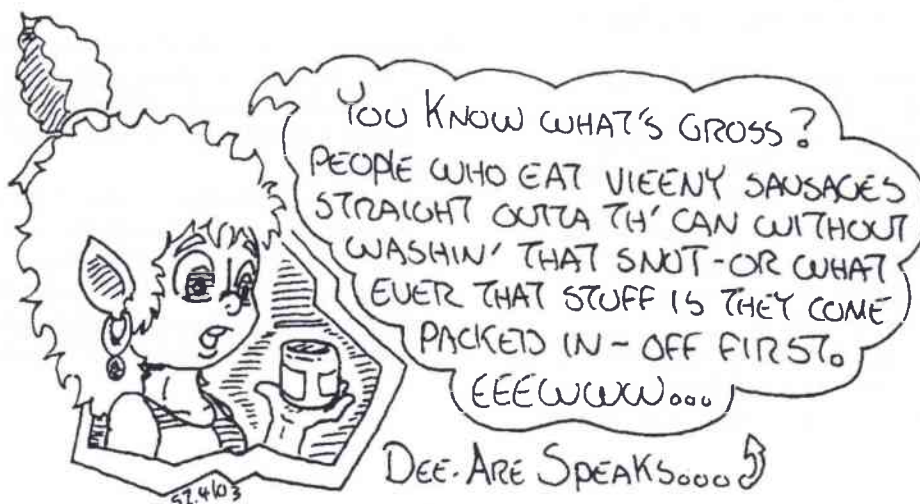 YOU KNOW WHAT'S GROSS?
PEOPLE WHO EAT VIEENY SAUSAGES
STRAIGHT OUTTA TH' CAN WITHOUT
WASHIN' THAT SNOT-OR WHAT
EVER THAT STUFF IS THEY COME
PACKED IN-OFF FIRST.
EEEWWW...
DEE.ARE SPEAKS....